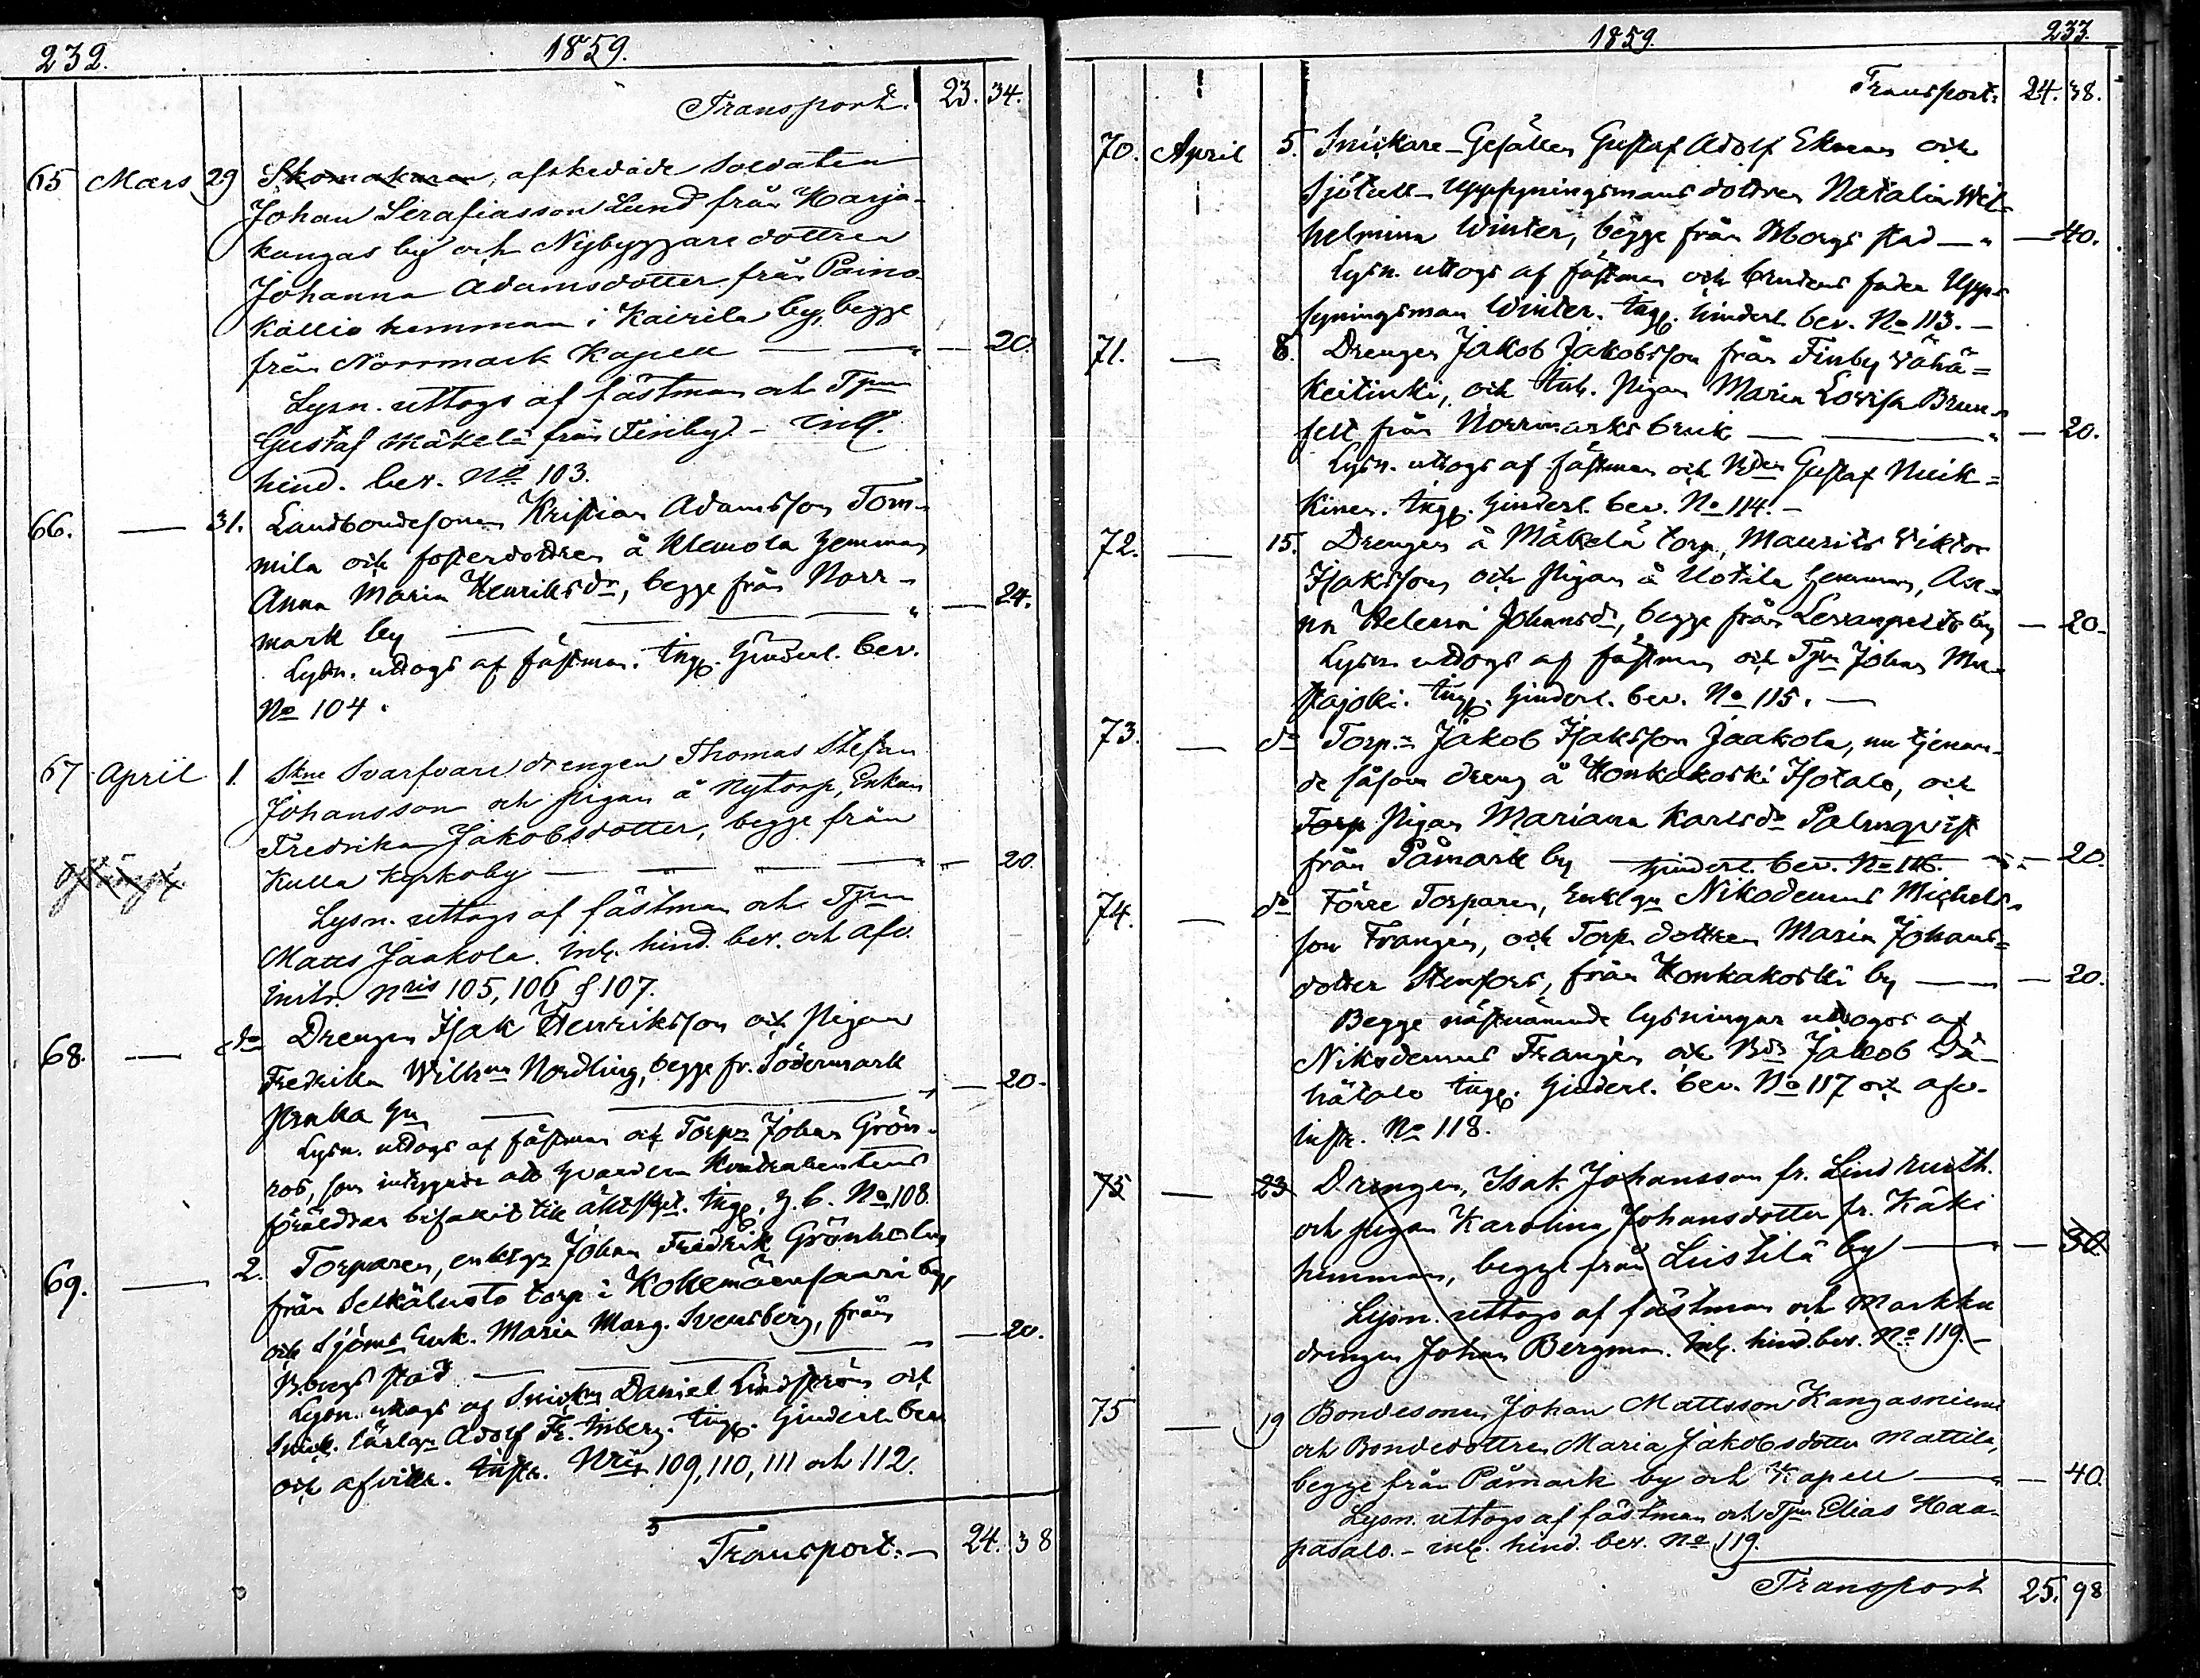 232. 1859.
Transport. 23. 34.
65 Mars 29 Skomakaren, afskedade Soldaten
Johan Serafiasson Lund från Harja-
kangas by och Nybyggare dottren
Johanna Adamsdotter från Paino-
kallio hemman i Kairila by, begge
från Norrmark Kapell — — " — 20.
Lysn. uttogs af fästman och Tjmn
Gustaf Mäkelä från Finby. – Inl.
hind. bev. No 103.
66. — 31. Landbondesonen Kristian Adamsson Tom-
mila och fosterdottren å Klemola hemman
Anna Maria Henriksdr, begge från Norr-
mark by — — — " — 24.
Lysn. uttogs af fästman. Ingg. hinderl. bev.
No 104.
67 April 1. Skne Svarfvare drengen Thomas Stefan
Johansson och pigan å Nytorp, Enkan
Fredrika Jakobsdotter, begge från
Kulla Kyrkoby — " — " — 20.
Lysn. uttogs af fästman och Tjmn
Matts Jaakola. Inl. hind. bev. och afv.
Instr. Nris 105, 106 & 107.
68. — do Drengen Isak Henriksson och Pigan
Fredrika Wilhna Nordling, begge fr. Södermark
— — " — 20.
Lysn. uttogs af fästman och Torpn Johan Grön-
ros, som intygade att hvardera kontrahenternas
föräldrar bifallit till äktskpt. Ingg. h. b. No 108.
69. — 2. Torparen, enklgn Johan Fredrik Grönholm
från Selkäluoto torp i Kokemäensaari by
och Sjöms Enk. Maria Marg. Svensberg, från
Bborgs stad — — — — " — 20.
Lysn. uttogs af Snickn Daniel Lindström och
Snick. lärlgn Adolf Fr. Inberg. Ingg. hinderl. bev
och afvittr. Instr. Nris 109, 110, 111 och 112.
Transport. — 24. 38
1859. 233.
Transport. 24. 38.
70. April 5. Snickare-Gesällen Gustaf Adolf Ekman och
Sjötull-Uppsyningsmans dottren Natalia Wil-
helmina Winter, begge från Bborgs stad — " — 40.
Lysn. uttogs af fästman och brudens fader Upp-
syningsman Winter. Ingg. hinderl. bev. No 113. —
71. — 8. Drengen Jakob Jakobsson från Finby Vähä-
Keitinki, och Inh. Pigan Maria Lovisa Brun-
felt från Norrmarks bruk — — " — 20.
Lysn. uttogs af fästman och Bdn Gustaf Nuik-
kinen. Ingg. hinderl. bev. No 114. —
72. — 15. Drengen å Mäkelä torp, Maurits Viktor
Isaksson och Pigan å Uotila hemman, An-
na Helena Johansdr, begge från Levanpelto by — 20.
Lysn. uttogs af fästman och Tjmn Johan Mu-
stajoki. Ingg. hinderl. bev. No 115. —
73. — do Torp.n Jakob Isaksson Jaakola, nu tjenan-
de såsom dreng å Honkakoski Isotalo, och
Torp Pigan Mariana Karlsdr Palmqvist
från Påmark by hinderl. bev. No 116. — " — 20.
74. — do Förre Torparen, Enklgn Nikodemus Michels-
son Frangén, och Torp dottren Maria Johans-
dotter Stenfors, från Honkakoski by — — 20.
Begge nästnämnde lysningar uttogos af
Nikodemus Frangén och Bdn Jakob Vä-
hätalo Ingg. hinderl. bev. No 117 och afv.
Instr. No 118.
75 — 23 Drengen, Isak Johansson fr.
och pigan Karolina Johansdotter fr. Käki
hemman, begge från Leistilä by — " — 30.
Lysn. uttogs af fästman och Markku
drengen Johan Bergman. Inl. hind. bev. No 119. –
75 — 19 Bondesonen Johan Mattsson Kangasniemi
och Bondedottren Maria Jakobsdotter Mattila,
begge från Påmark by och Kapell — " — 40.
Lysn. uttogs af fästman och Tjmn Elias Haa-
pasalo. – inl. hind. bev. No 119.
Transport 25. 98